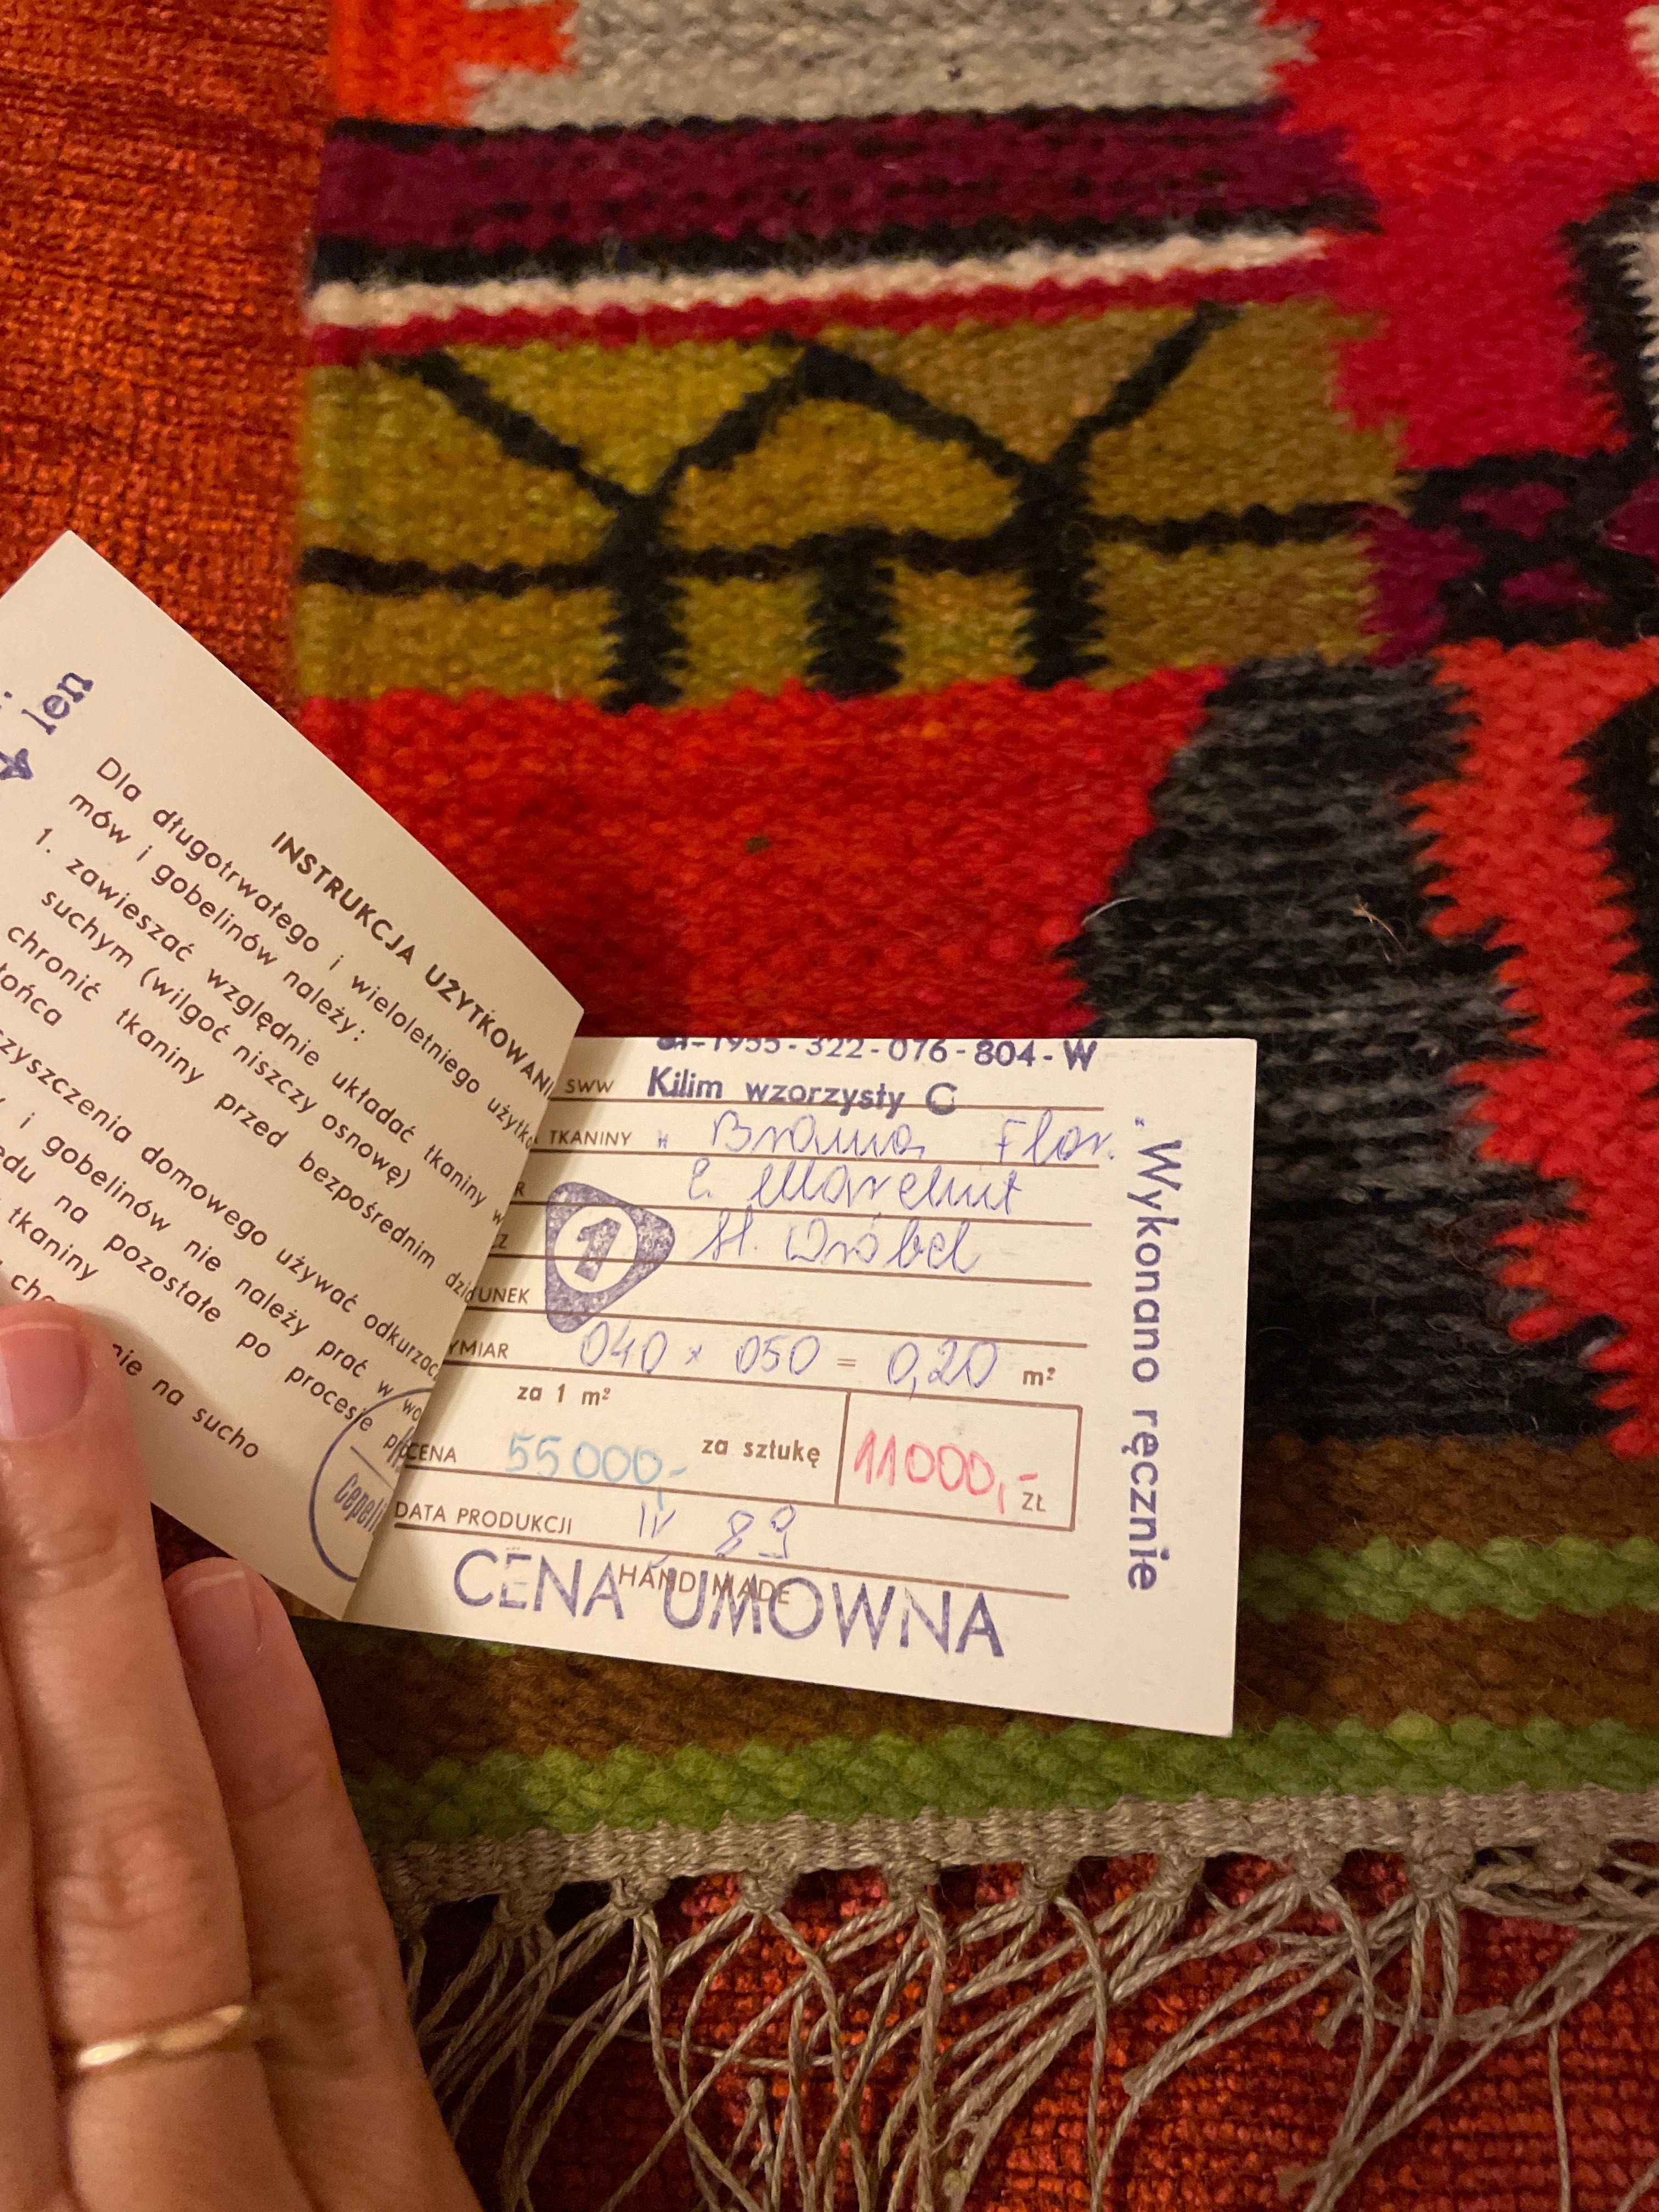 len
INSTRUKCJA UŻYTKOWANI
Dla długotrwałego i wieloletniego użytko
mów i gobelinów należy:
1. zawieszać względnie układać tkaniny w
suchym (wilgoć niszczy osnowę)
chronić tkaniny przed bezpośrednim dzia
ońca
zyszczenia domowego używać odkurzac
i gobelinów nie należy prać w wo
edu na pozostałe po procesie
tkaniny
nie na sucho
Cepeli
1955-322-076-804-W
SWW Kilim wzorzysty C
TKANINY " Brama Flor. "
R E. Marchut
CZ St. Wróbel
UNEK 1
YMIAR 040 x 050 = 0,20 m²
za 1 m²
CENA 55000,- za sztukę 11000,- ZŁ
DATA PRODUKCJI IV 89
HAND MADE
CENA UMOWNA
Wykonano ręcznie